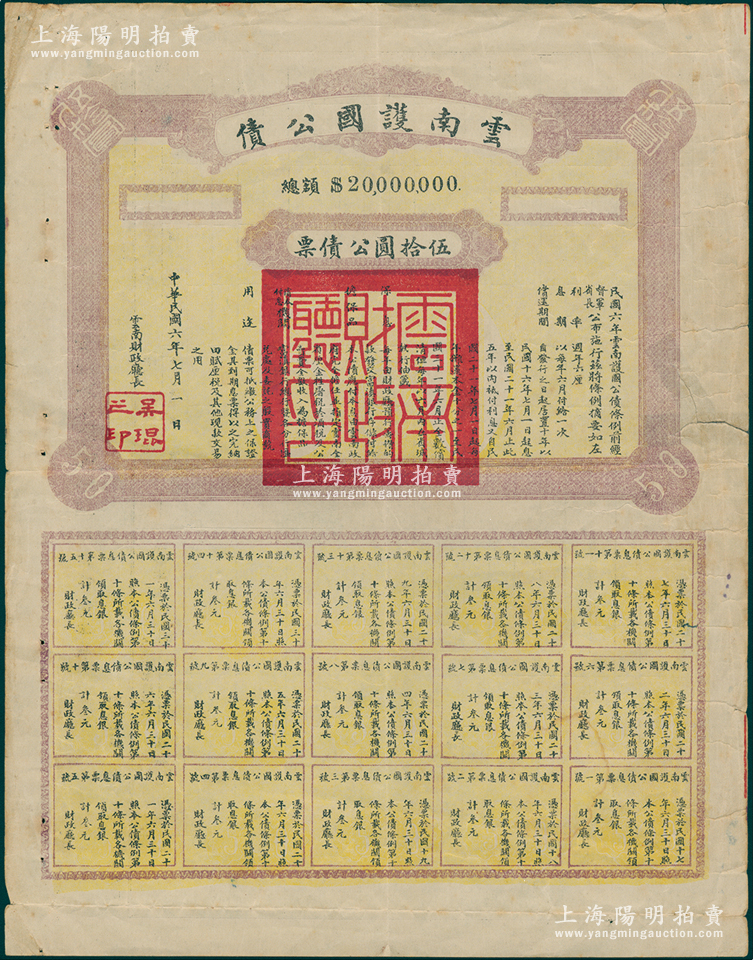 上海陽明拍賣
www.yangmingauction.com
上海陽明拍賣
www.yangmingauction.com
雲南護國公債
總額 $20,000,000.
伍拾圓公債票
民國六年雲南護國公債條例前經
督軍
省長
公布施行茲將條例摘要如左
利率 週年六厘
息期 以每年六月付給一次
償還期間
自發行之日起居置十年以
民國十六年七月一日起息
至民國二十一年六月止此
五年以内祇付利息又自民
國二十一年七月
用途
債票可抵繳公務上之保證
金其到期息票得以之完納
田賦厘稅及其他現款交易
之用
中華民國六年七月一日
雲南財政廳長
吳琨之印
50
50
上海陽明拍賣
www.yangmingauction.com
雲南護國公債息票第十一號
憑票於民國二十
七年六月三十日
照本公債條例第
十條所載各機關
領取息銀
計叁元
財政廳長
雲南護國公債息票第十二號
憑票於民國二十
八年六月三十日
照本公債條例第
十條所載各機關
領取息銀
計叁元
財政廳長
雲南護國公債息票第十三號
憑票於民國二十
九年六月三十日
照本公債條例第
十條所載各機關
領取息銀
計叁元
財政廳長
雲南護國公債息票第十四號
憑票於民國三十
年六月三十日照
本公債條例第十
條所載各機關領
取息銀
計叁元
財政廳長
雲南護國公債息票第十五號
憑票於民國三十
一年六月三十日
照本公債條例第
十條所載各機關
領取息銀
計叁元
財政廳長
雲南護國公債息票第六號
憑票於民國二十
二年六月三十日
照本公債條例第
十條所載各機關
領取息銀
計叁元
財政廳長
雲南護國公債息票第七號
憑票於民國二十
三年六月三十日
照本公債條例第
十條所載各機關
領取息銀
計叁元
財政廳長
雲南護國公債息票第八號
憑票於民國二十
四年六月三十日
照本公債條例第
十條所載各機關
領取息銀
計叁元
財政廳長
雲南護國公債息票第九號
憑票於民國二十
五年六月三十日
照本公債條例第
十條所載各機關
領取息銀
計叁元
財政廳長
雲南護國公債息票第十號
憑票於民國二十
六年六月三十日
照本公債條例第
十條所載各機關
領取息銀
計叁元
財政廳長
雲南護國公債息票第一號
憑票於民國十七
年六月三十日照
本公債條例第十
條所載各機關領
取息銀
計叁元
財政廳長
雲南護國公債息票第二號
憑票於民國十八
年六月三十日照
本公債條例第十
條所載各機關領
取息銀
計叁元
財政廳長
雲南護國公債息票第三號
憑票於民國十九
年六月三十日照
本公債條例第十
條所載各機關領
取息銀
計叁元
財政廳長
雲南護國公債息票第四號
憑票於民國二十
年六月三十日照
本公債條例第十
條所載各機關領
取息銀
計叁元
財政廳長
雲南護國公債息票第五號
憑票於民國二十
一年六月三十日
照本公債條例第
十條所載各機關
領取息銀
計叁元
財政廳長
上海陽明拍賣
www.yangmingauction.com